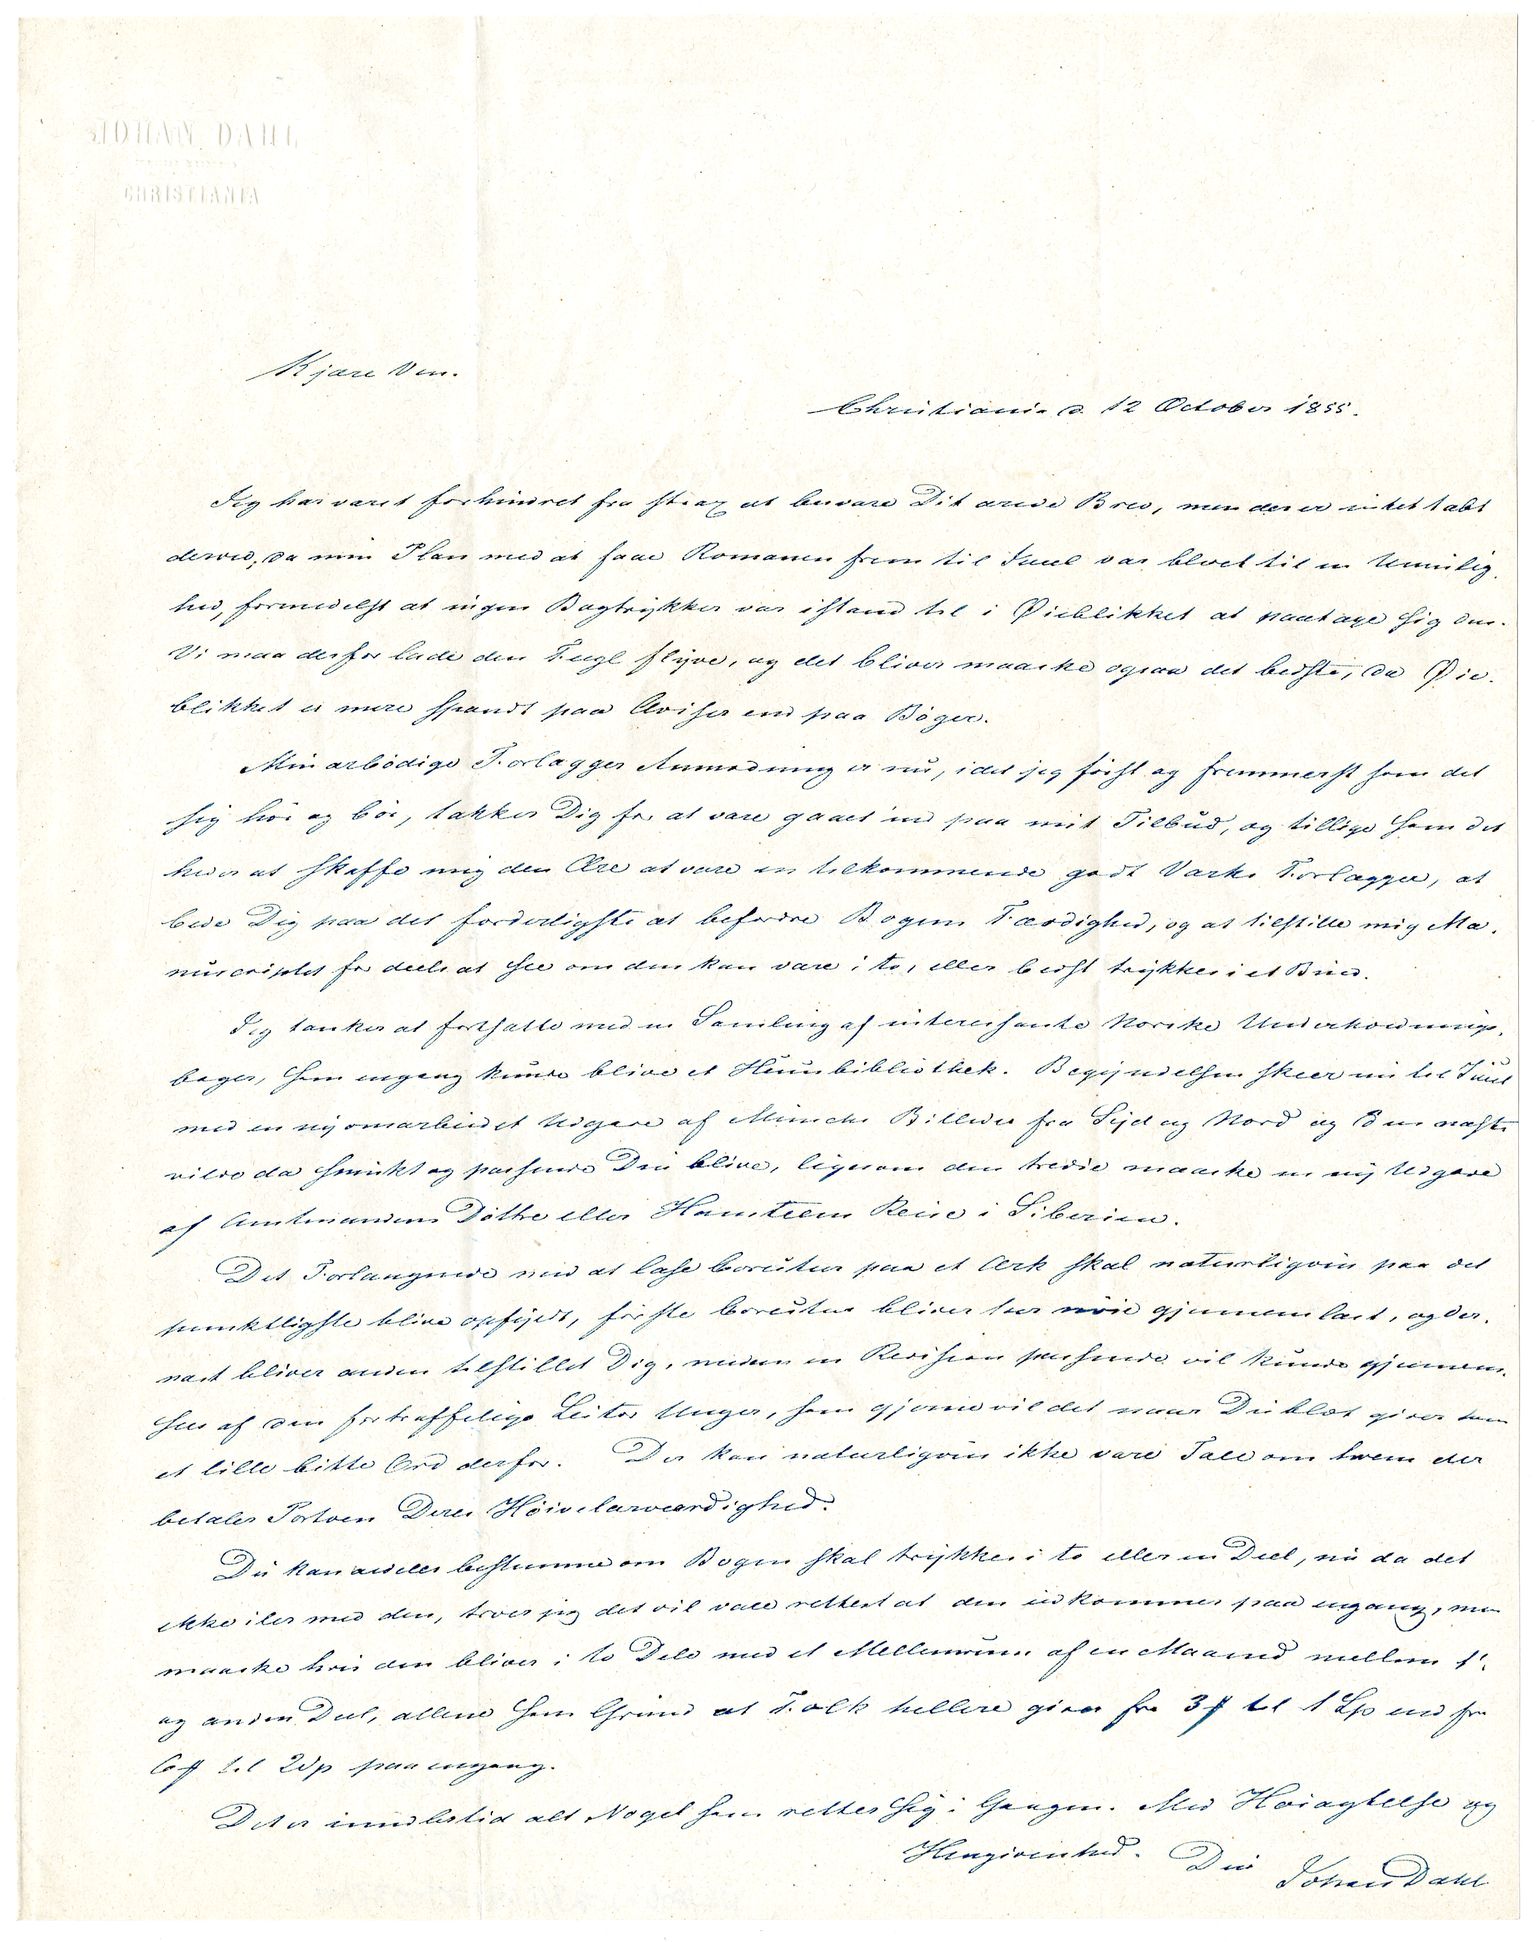 JOHAN DAHL
CHRISTIANIA
Kjære Ven.
Christiania d. 12 October 1855.
Jeg har været forhindret fra strax at besvare Dit ærede Brev, men der er intet tabt
derved, da min Plan med at faae Romanen frem til Juul var blevet til en Umulig
hed, formedelst at ingen Bogtrykker var istand til i Øieblikket at paatage sig den.
Vi maa derfor lade den Fugl flyve, og det bliver maaske ogsaa det bedste, da Øie-
blikket er mere spændt paa Aviser end paa Bøger.
Min ærbødige Forlægger Anmodning er nu, idet jeg først og fremmerst som det
sig hør og bør, takker Dig for at være gaaet ind paa mit Tilbud, og tillige som det
heder at skaffe mig den Ære at være en tilkommende godt Værks Forlægger, at
bede Dig paa det forderligste at befordre Bogens Færdighed, og at tilstille mig Ma-
nuscriptet for deels at see om den kan være i to, eller bedst trykkes i et Bind.
Jeg tænker at fortsætte med en Samling af interessante Norske Underholdnings-
bøger, som engang kunde blive et Huusbibliothek. Begyndelsen skeer nu til Juul
med en ny omarbeidet Udgave af Munchs Billeder fra Syd og Nord og Den næste
vilde da smukt og passende Din blive, ligesom den tredie maaske en ny Udgave
af Amtmandens Døttre eller Hansteens Reise i Siberien.
Det Forlangende med at læse Correctur paa et Ark skal naturligviis paa det
punktligste blive opfyldt, første Correctur bliver her nøie gjennemlæst, og der-
næst bliver anden tilstillet Dig, medens en Revision passende vil kunde gjennem-
sees af den fortræffelige Lector Unger, som gjerne vil det naar Du blot giver ham
et lille bitte Ord derfor. Der kan naturligviis ikke være Tale om hvem der
betaler Portoen Deres Høivelærværdighed.
Du kan aldeles bestemme om Bogen skal trykkes i to eller en Deel, nu da det
ikke iler med den, troer jeg det vil være rettest at den udkommer paa engang, men
maaske hvis den bliver i to Dele med et Mellemrum af en Maaned mellem 1'.
og anden Deel, allene som Grund at Folk hellere giver fra 3 til 1 Sp end fra
til 2 Sp paa engang.
Det er imidlertid alt Noget som retter sig i Gangen. Med Høiagtelse og
Hengivenhed. Din Johan Dahl